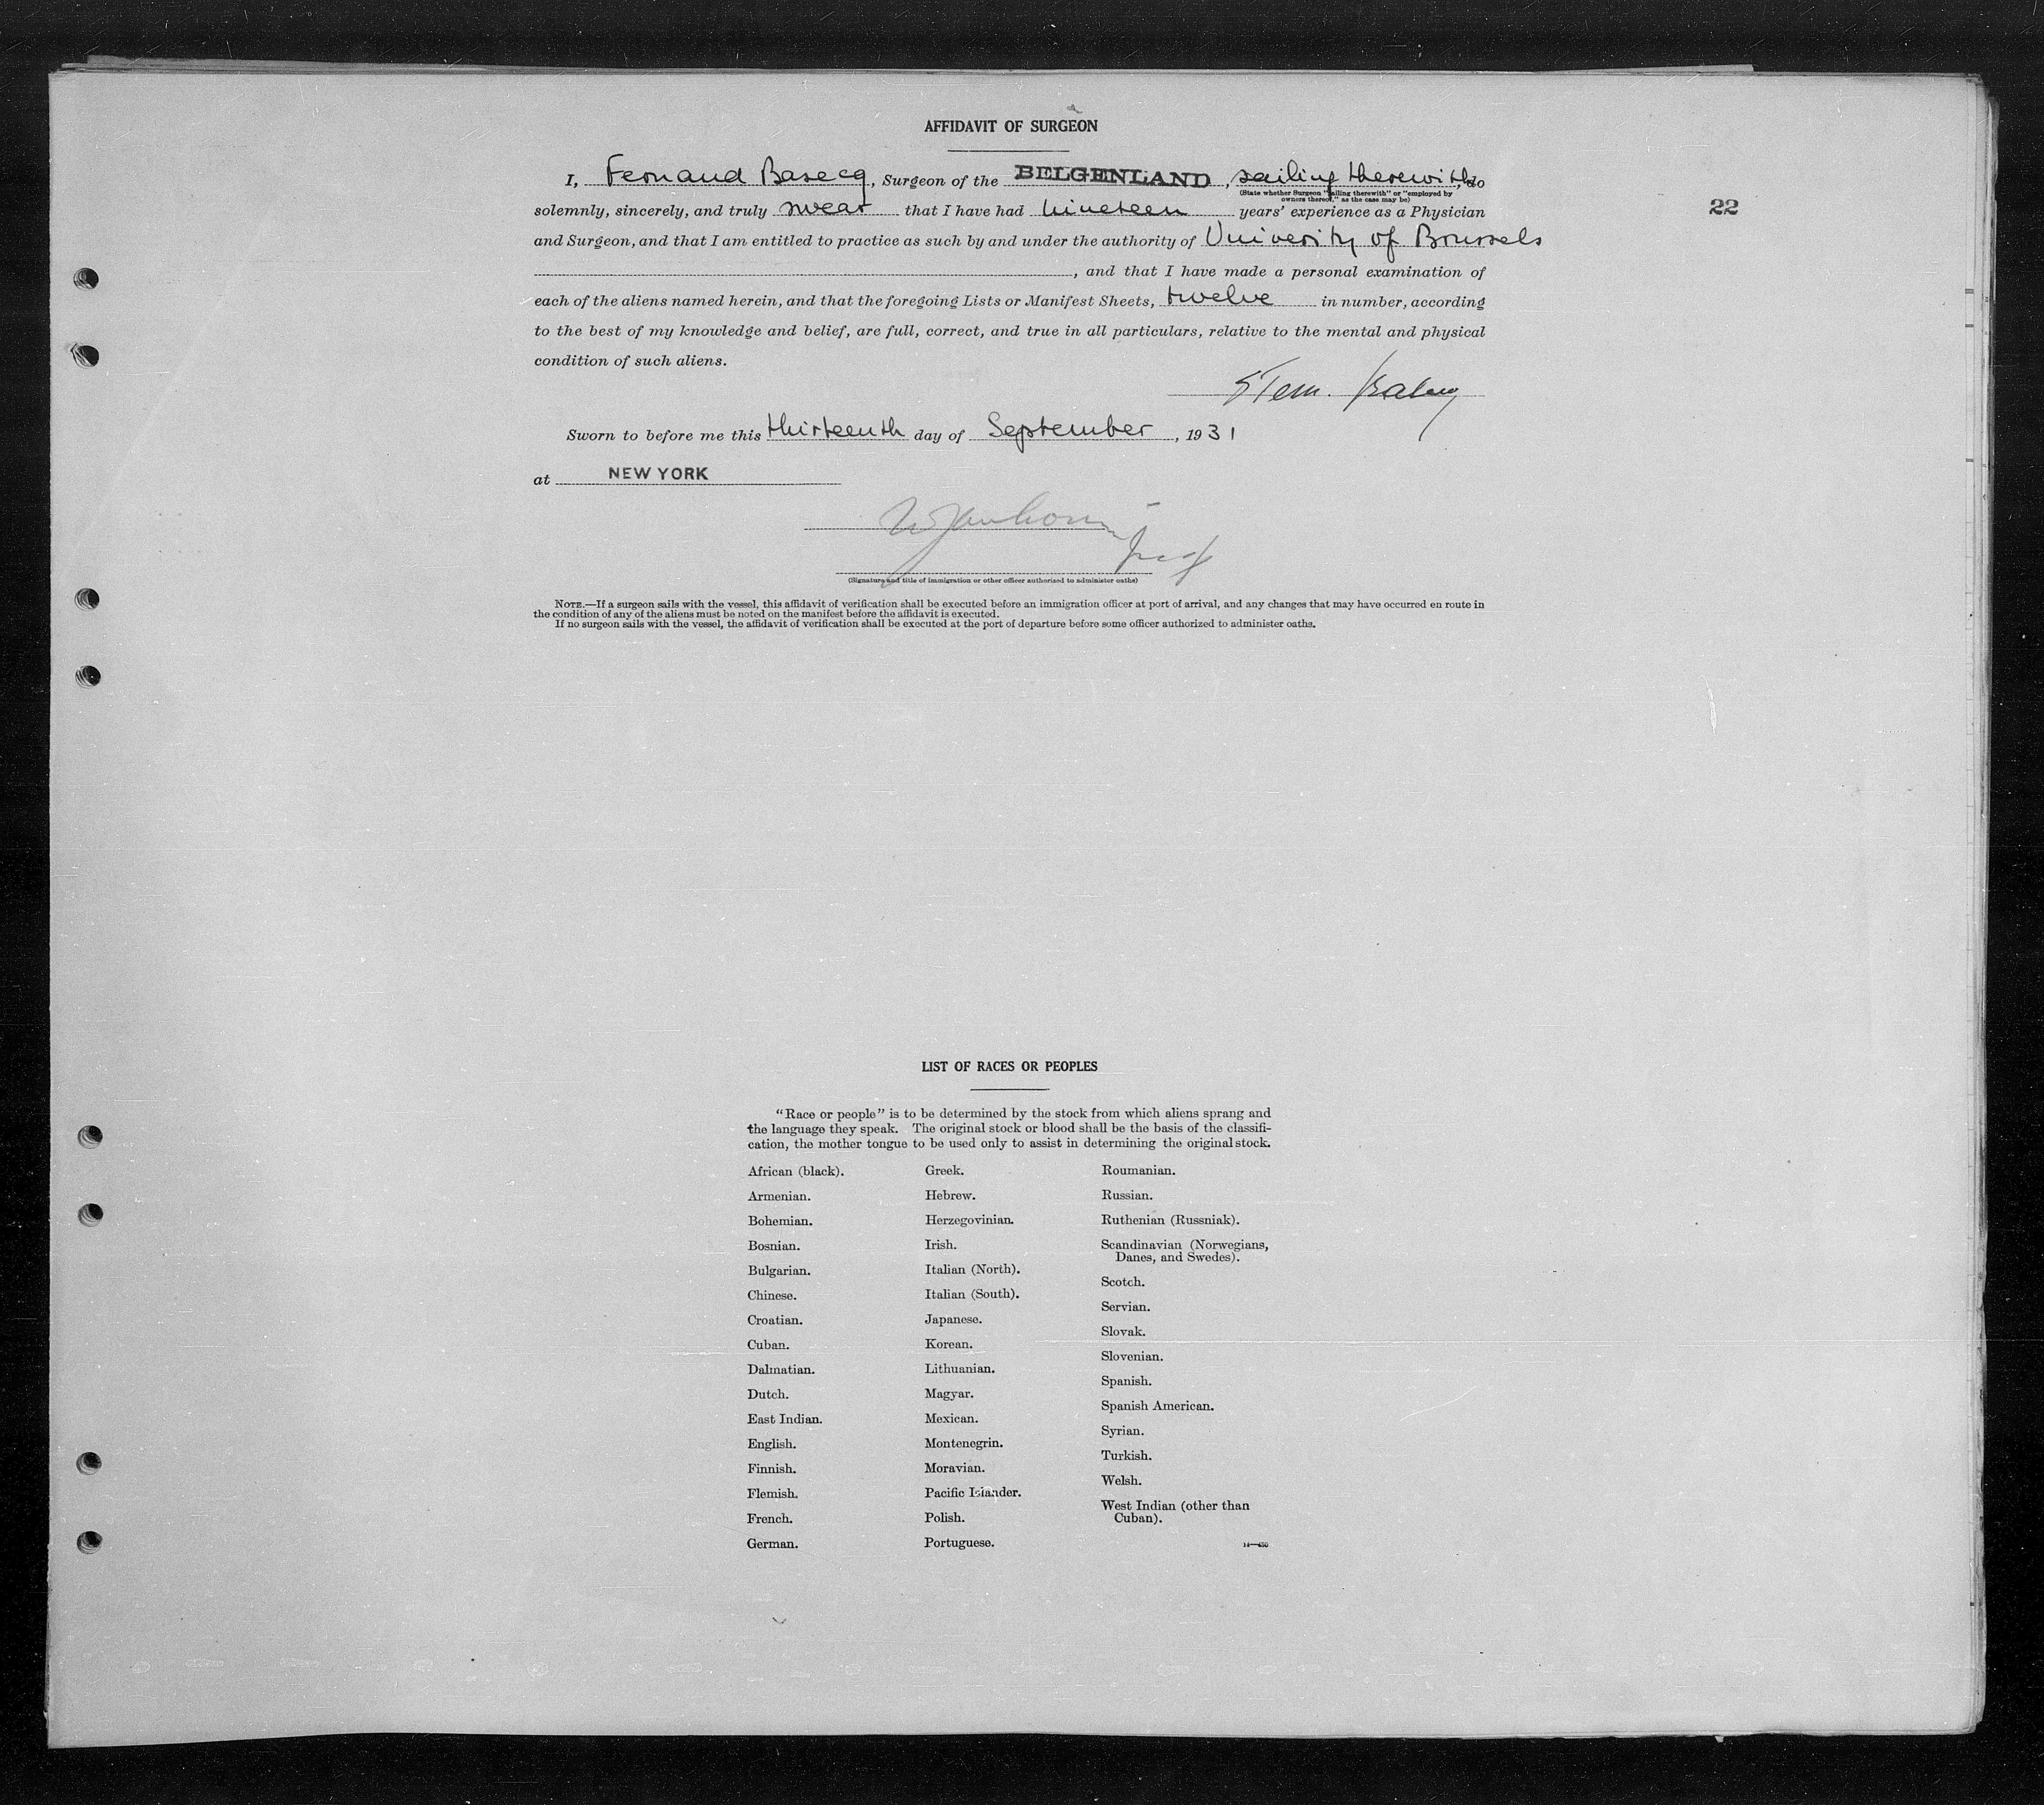 AFFIDAVIT OF SURGEON
I, Fernand Basecq, Surgeon of the BELGENLAND, sailing therewith, do
(State whether Surgeon "sailing therewith" or "employed by
owners thereof," as the case may be)
solemnly, sincerely, and truly swear that I have had nineteen years' experience as a Physician
22
and Surgeon, and that I am entitled to practice as such by and under the authority of Univerity of Brussels
, and that I have made a personal examination of
each of the aliens named herein, and that the foregoing Lists or Manifest Sheets, twelve in number, according
to the best of my knowledge and belief, are full, correct, and true in all particulars, relative to the mental and physical
condition of such aliens.
Sworn to before me this thirteenth day of September, 1931
at NEW YORK
(Signature and title of immigration or other officer authorized to administer oaths)
NOTE.—If a surgeon sails with the vessel, this affidavit of verification shall be executed before an immigration officer at port of arrival, and any changes that may have occurred en route in
the condition of any of the aliens must be noted on the manifest before the affidavit is executed.
If no surgeon sails with the vessel, the affidavit of verification shall be executed at the port of departure before some officer authorized to administer oaths.
LIST OF RACES OR PEOPLES
"Race or people" is to be determined by the stock from which aliens sprang and
the language they speak. The original stock or blood shall be the basis of the classifi-
cation, the mother tongue to be used only to assist in determining the original stock.
African (black).
Armenian.
Bohemian.
Bosnian.
Bulgarian.
Chinese.
Croatian.
Cuban.
Dalmatian.
Dutch.
East Indian.
English.
Finnish.
Flemish.
French.
German.
Greek.
Hebrew.
Herzegovinian.
Irish.
Italian (North).
Italian (South).
Japanese.
Korean.
Lithuanian.
Magyar.
Mexican.
Montenegrin.
Moravian.
Pacific Islander.
Polish.
Portuguese.
Roumanian.
Russian.
Ruthenian (Russniak).
Scandinavian (Norwegians,
Danes, and Swedes).
Scotch.
Servian.
Slovak.
Slovenian.
Spanish.
Spanish American.
Syrian.
Turkish.
Welsh.
West Indian (other than
Cuban).